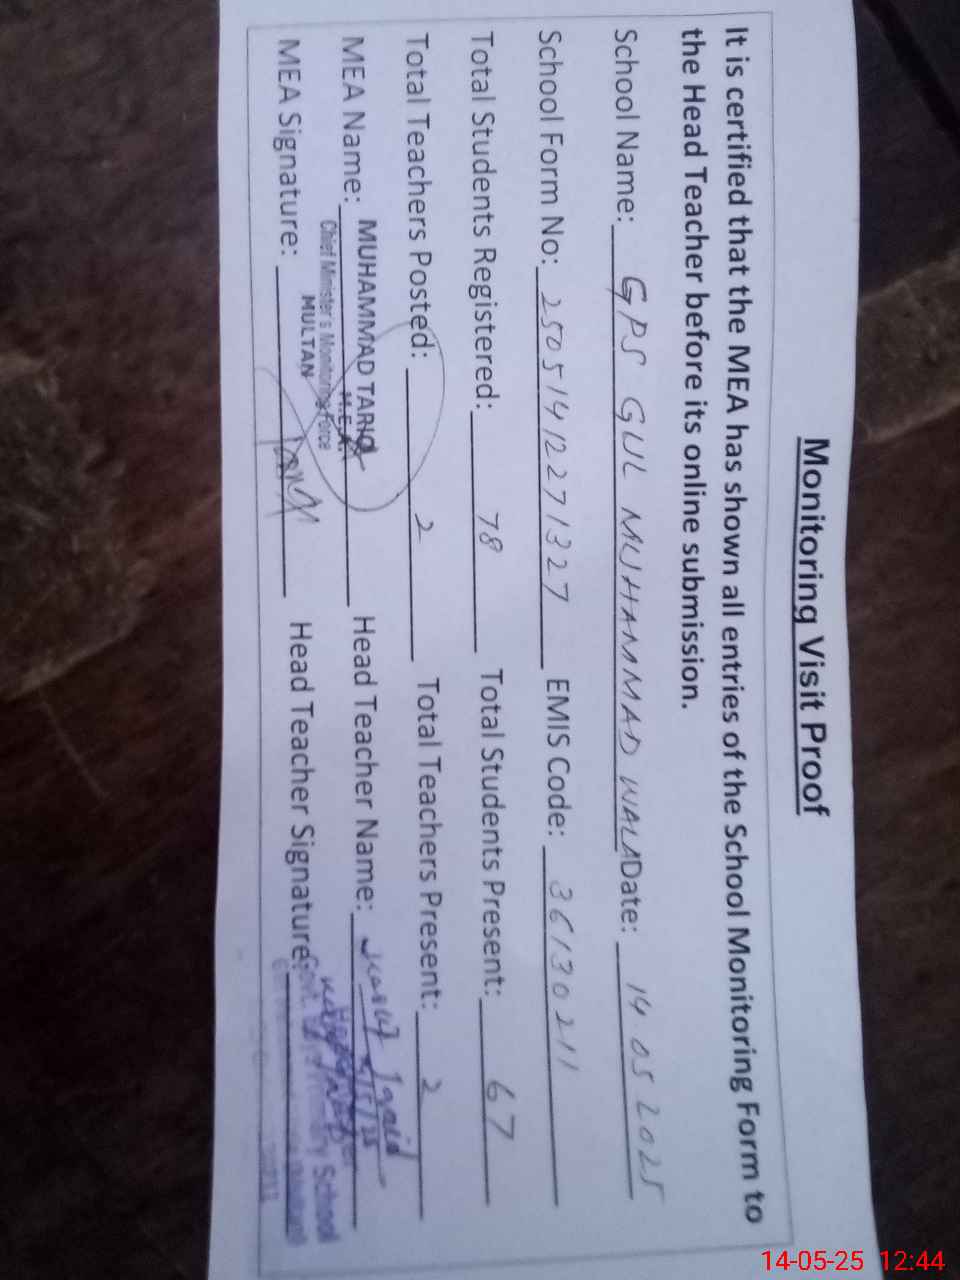 Monitoring Visit Proof
It is certified that the MEA has shown all entries of the School Monitoring Form to
the Head Teacher before its online submission.
School Name: GPS GUL MUHAMMAD WALA Date: 14.05.2025
School Form No: 250514122271327 EMIS Code: 36130211
Total Students Registered: 78 Total Students Present: 67
Total Teachers Posted: 2 Total Teachers Present: 2
MEA Name: MUHAMMAD TARIQ Head Teacher Name:
M.E.A.
Chief Minister's Monitoring Force
MULTAN
MEA Signature: Head Teacher Signature:
Govt. Primary School
14-05-25 12:44